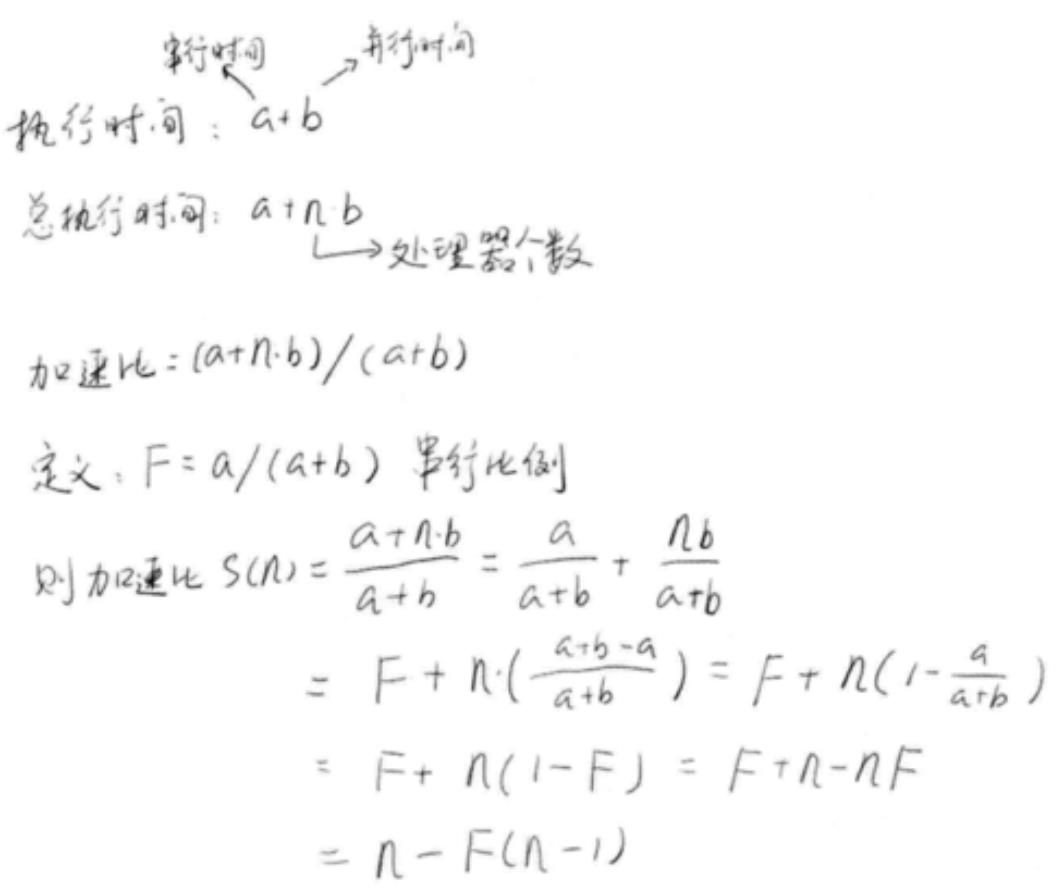 串行时间 并行时间
执行时间: a+b
总执行时间: a+n·b
处理器个数
加速比=(a+n·b)/(a+b)
定义: F=a/(a+b) 串行比例
则加速比 S(n)= \frac{a+n·b}{a+b} = \frac{a}{a+b} + \frac{nb}{a+b}
= F+n·(\frac{a+b-a}{a+b}) = F+n(1-\frac{a}{a+b})
= F+n(1-F) = F+n-nF
= n-F(n-1)